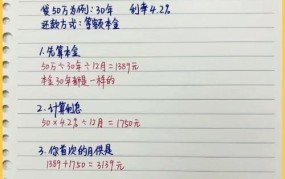 贷50万为例:30年 利率4.2%
还款方式:等额本金
1.先算本金
50万÷30年÷12月=1389元
本金30年都是一样的
2.计算利息
50×4.2%÷12月=1750元
3.你首次的月供是
1389+1750=3139元